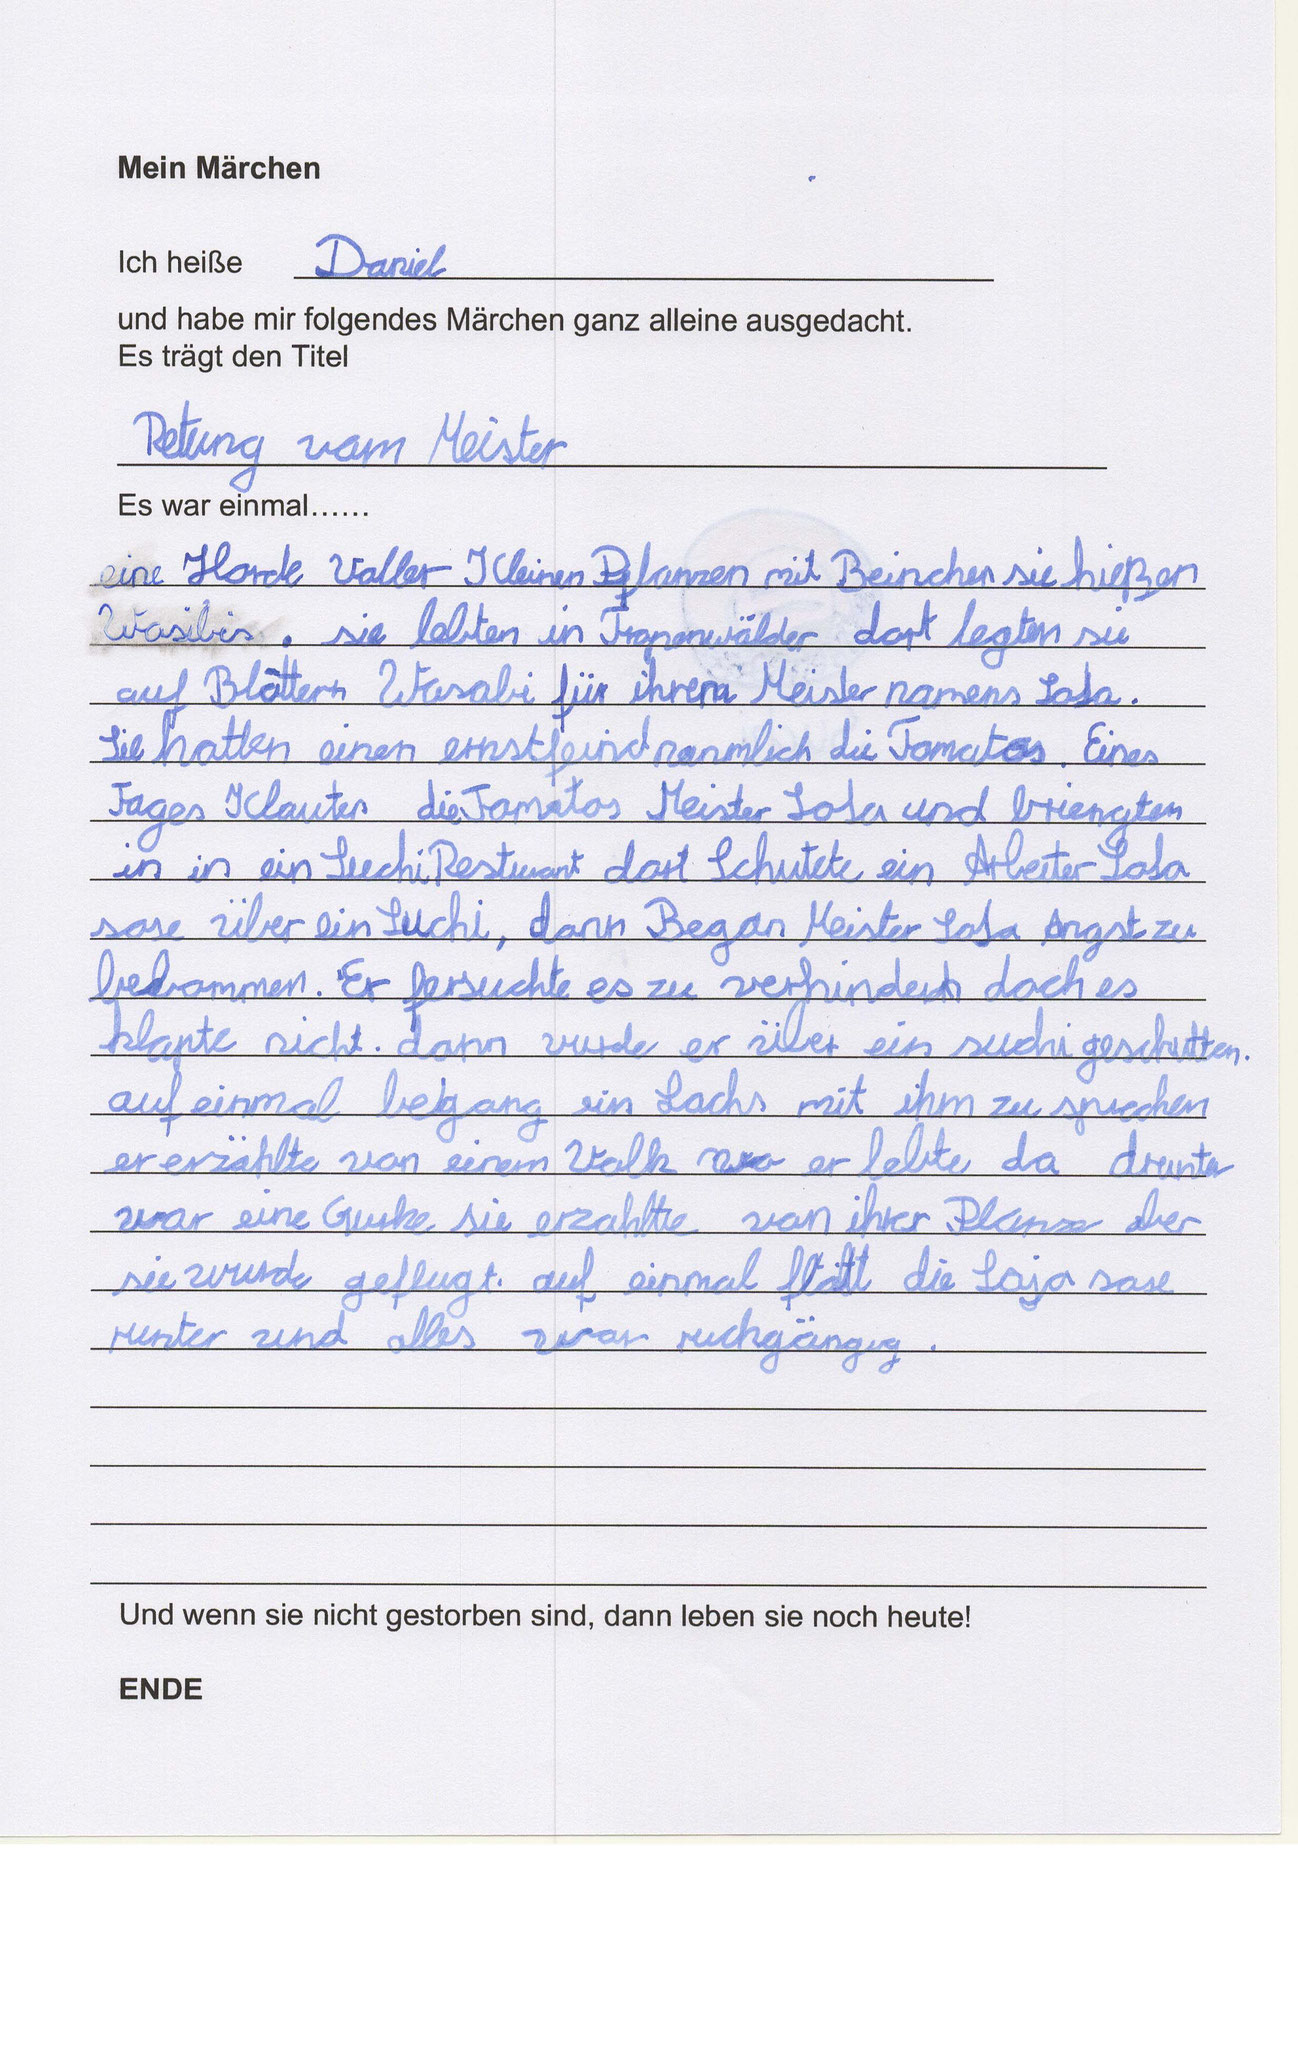 Mein Märchen
Ich heiße Daniel
und habe mir folgendes Märchen ganz alleine ausgedacht.
Es trägt den Titel
Retung vom Meister
Es war einmal......
eine Horde Voller Kleinen Pflanzen mit Beinchen sie hießen
Wasibis. sie lebten in Tropenwälder dort legten sie
auf Blättern Wasabi für ihren Meister namens Soja.
Sie hatten einen ernstfeind nanmlich die Tomatos. Eines
Tages Klauten die Tomatos Meister Soja und briengten
in in ein Suchi Resturant dort Schutete ein Arbeiter Soja
sose über ein Suchi, dann Began Meister Soja Angst zu
bekommen. Er fersuchte es zu verhindern doch es
klapte nicht. dann wurde er über ein suchi geschutten.
auf einmal begang ein Lachs mit ihm zu sprechen
er erzählte von einem Volk wo er lebte da drunter
war eine Gurke sie erzahlte von ihrer Planze aber
sie wurde geflugt. auf einmal die Soja sose
runter und alles war ruckgängig.
Und wenn sie nicht gestorben sind, dann leben sie noch heute!
ENDE